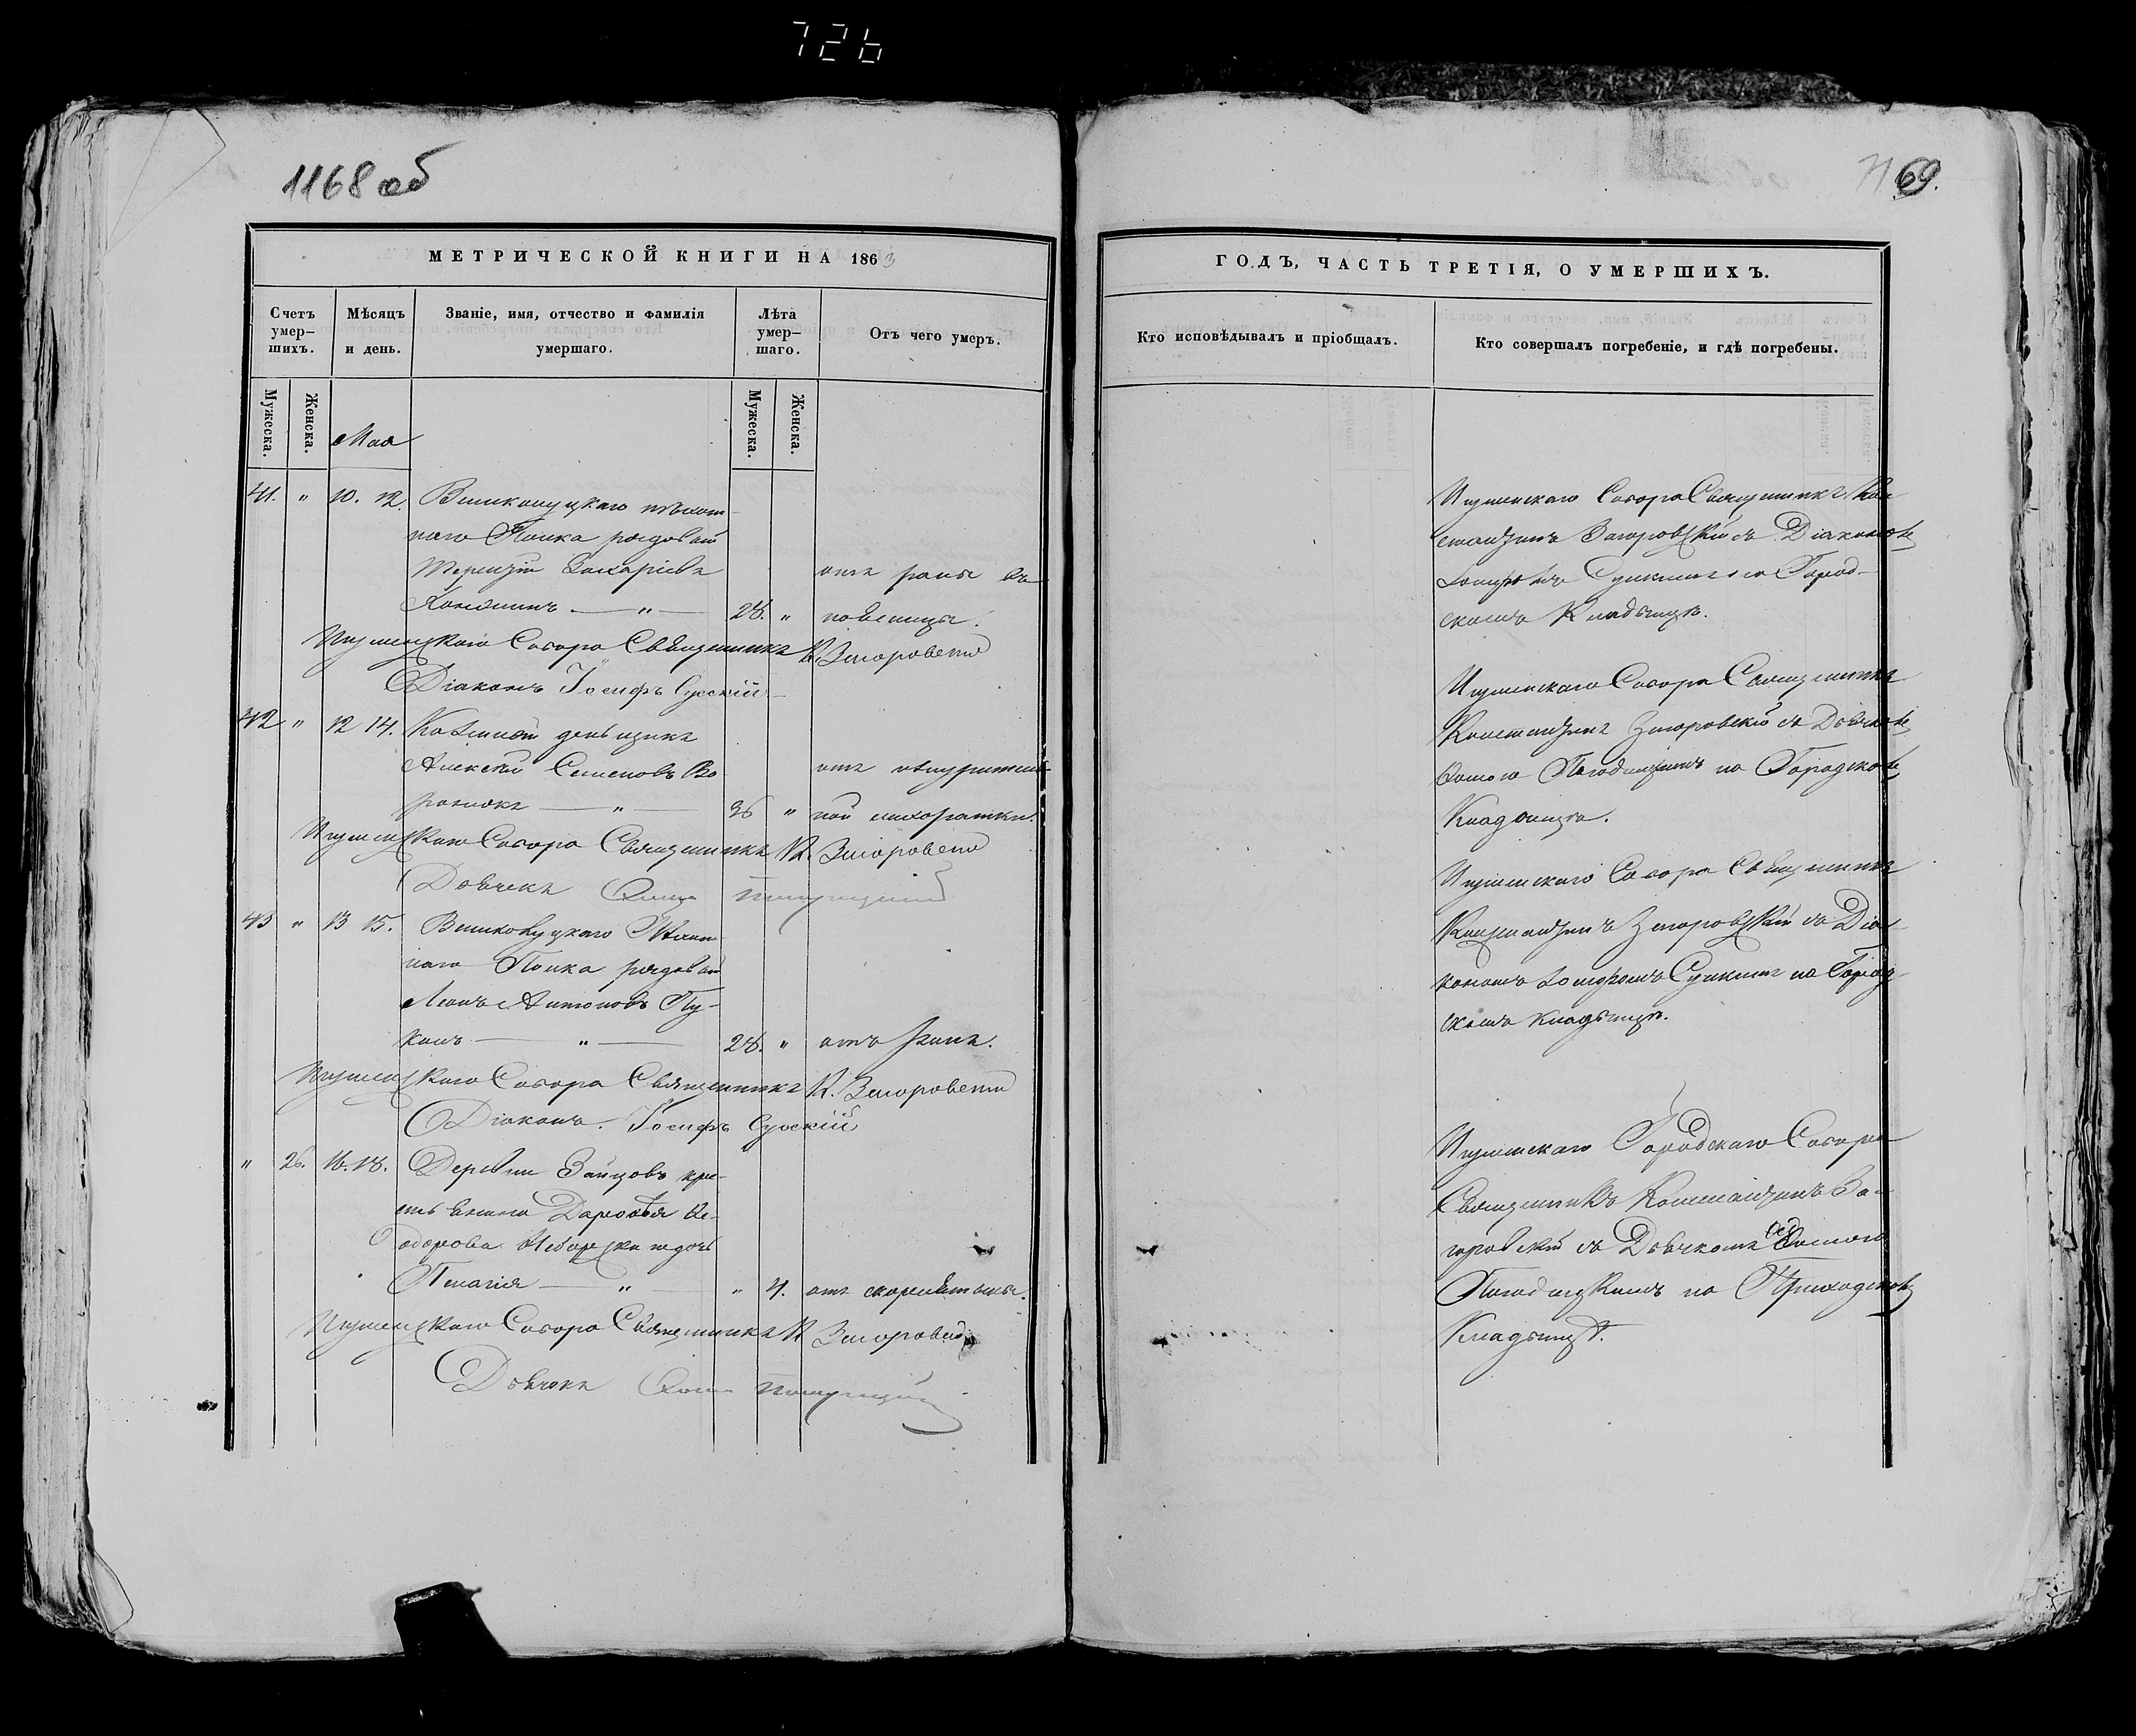 726
1168 об
1169.
МЕТРИЧЕСКОЙ КНИГИ НА 1863
Счетъ умер-
шихъ.
Мѣсяцъ
и день.
Званіе, имя, отчество и фамилія
умершаго.
Лѣта
умер-
шаго.
Отъ чего умеръ.
Мужеска.
Женска.
Мая
Мужеска.
Женска.
41. " 10. 12. Великолуцкаго пѣхот-
наго Полка рядовой
Терентій Захаріевъ отъ раны въ
28. "
Игуменскаго Собора Священникъ К. Загоровскій
Діаконъ Іосифъ Сускій
42 " 12 14. Казенный деньщикъ
Алексѣй Семеновъ Во-
36 " ной лихорадки.
Игуменскаго Собора Священникъ К. Загоровскій
Дьячекъ Фома
43 " 13 15. Великолуцкаго Пѣхот-
наго Полка рядовой
Антоновъ Пу-
" 28. " отъ ранъ.
Игуменскаго Собора Священникъ К. Загоровскій
Діаконъ. Іосифъ Сускій
" 26. 16. 18. Деревни Зайцовъ кре-
дочь
Пелагія " " 4. отъ скарлатины.
Игуменскаго Собора Священникъ К Загоровскій
Дьячекъ Фома
ГОДЪ, ЧАСТЬ ТРЕТІЯ, О УМЕРШИХЪ.
Кто исповѣдывалъ и пріобщалъ.
Кто совершалъ погребеніе, и гдѣ погребены.
Игуменскаго Собора Священникъ Кон-
стантинъ Загоровскій съ Діакономъ
Іосифомъ Сускимъ на Город-
скомъ Кладбищѣ.
Игуменскаго Собора Священникъ
Константинъ Загоровскій съ Дьячкомъ
Фомою на Городскомъ
Кладбищѣ.
Игуменскаго Собора Священникъ
Константинъ Загоровскій съ Діа-
кономъ Іосифомъ Сускимъ на Город-
скомъ кладбищѣ.
Игуменскаго Городскаго Собора
Священникъ Константинъ За-
горовскій съ Дьячкомъ Фомою
на Приходскомъ
Кладбищѣ.